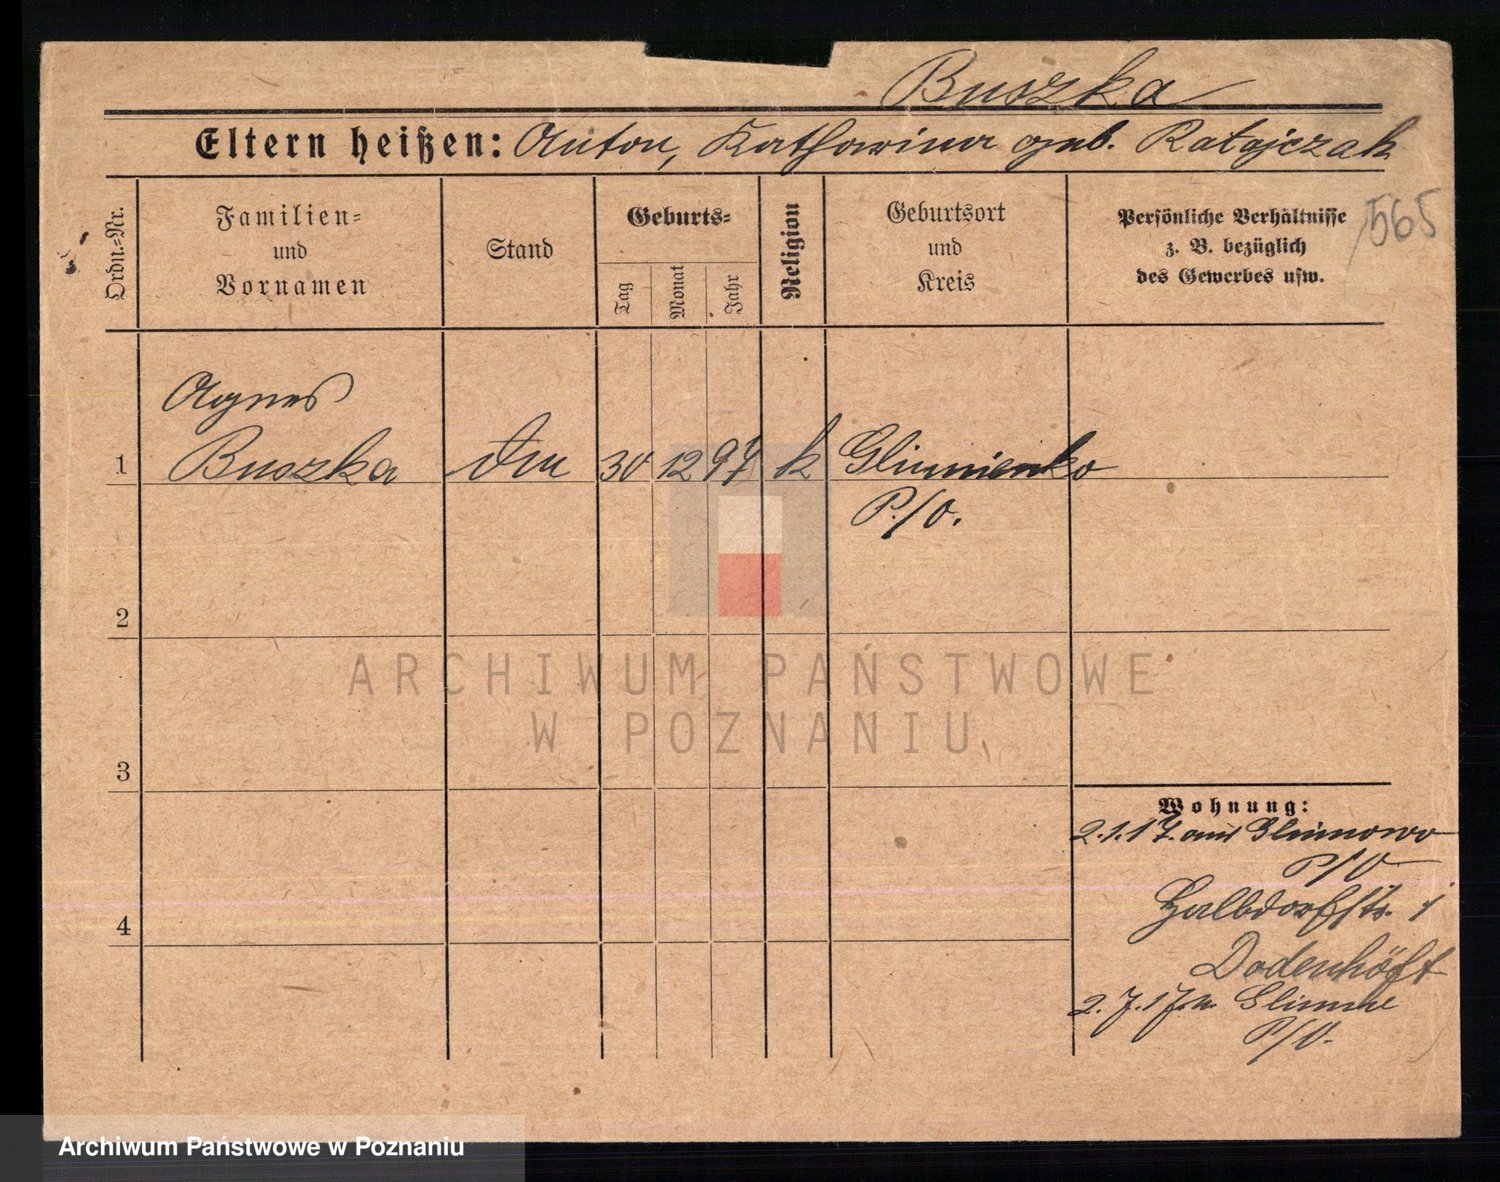 Buszka
Eltern heißen: Anton, Katharina geb. Ratajczak
565
Ordn.=Nr.
Familien=
und
Vornamen
Stand
Geburts=
Tag
Monat
Jahr
Religion
Geburtsort
und
Kreis
Persönliche Verhältnisse
z. B. bezüglich
des Gewerbes usw.
Agnes
1 Buszka 30 12 97 k Glinnienko
P./O.
2
3
4
Wohnung:
2.1.17. aus Glinnowo
P/O
Halbdorfstr.
Dodenhöft
2.7.17. n. Glinne
P/O.
ARCHIWUM PAŃSTWOWE
W POZNANIU
Archiwum Państwowe w Poznaniu